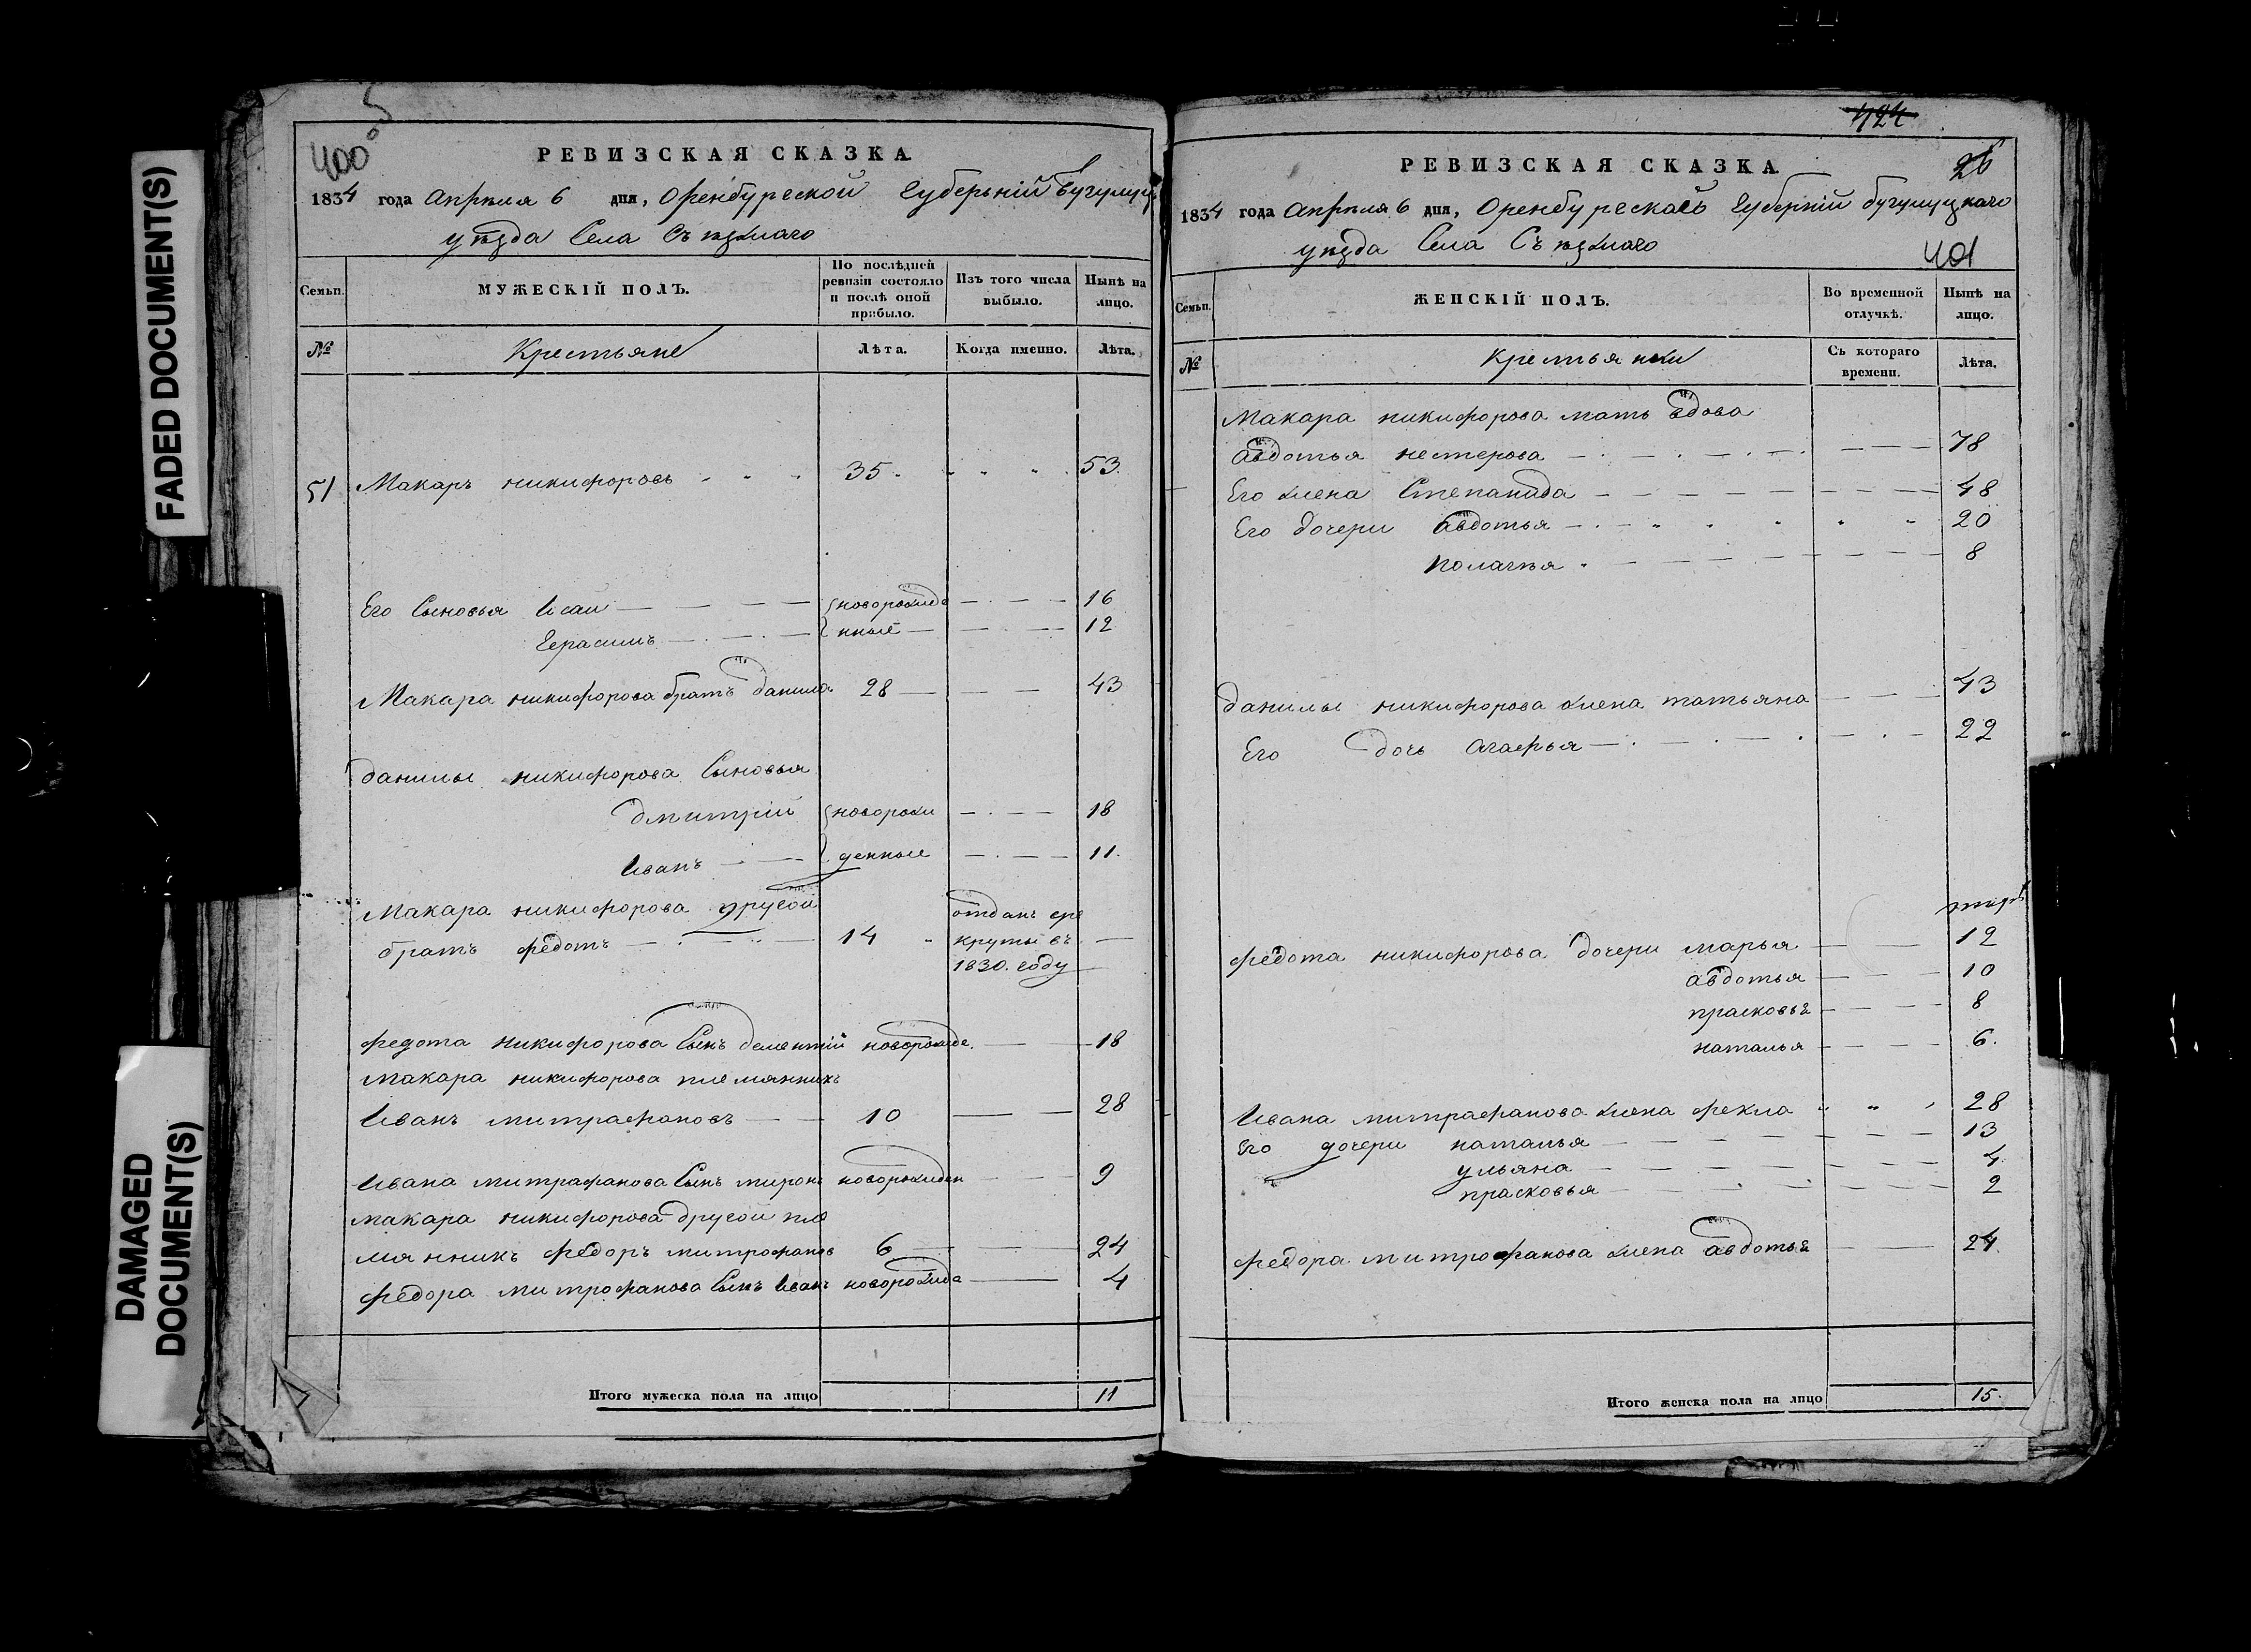 FADED DOCUMENT(S)
DAMAGED
DOCUMENT(S)
400
РЕВИЗСКАЯ СКАЗКА.
1834 года Апрѣля 6 дня, Оренбургской Губерніи Бугульм
уѣзда Села Съѣзжаго
Семьи.
МУЖЕСКІЙ ПОЛЪ.
По послѣдней ревизіи состояло и послѣ оной прибыло.
Изъ того числа выбыло.
Нынѣ на лицо.
№ Крестьяне Лѣта. Когда именно. Лѣта.
51 Макаръ никифоровъ 35 53
Его Сыновья Исай новорожде 16
Герасимъ нные 12
Макара никифорова братъ данила 28 43
данилы никифорова Сыновья
дмитрій новорож 18
Иванъ денные 11
Макара никифорова другой отданъ вре
братъ федотъ 14 круты въ
1830. году
федота никифорова Сынъ дементій новорожде. 18
Макара никифорова племянникъ
Иванъ митрафановъ 10 28
Ивана митрафанова Сынъ миронъ новорожден 9
макара никифорова другой пле
мянникъ федоръ митрофановъ 6 24
федора митрофанова Сынъ Иванъ новорожде 4
Итого мужеска пола на лицо 11
424
26
РЕВИЗСКАЯ СКАЗКА
1834 года Апрѣля 6 дня, Оренбургской Губерніи бугулуцкаго
уѣзда Села Съѣзжаго
401
Семьи.
ЖЕНСКІЙ ПОЛЪ.
Во временной отлучкѣ.
Нынѣ на лицо.
№ Крестьянки Съ котораго времени. Лѣта.
Макара никифорова мать вдова
авдотья нестерова 78
Его жена Степанида 48
Его дочери авдотья 20
полагѣя 8
данилы никифорова жена татьяна 43
Его дочь агафья 22
федота никифорова дочери марья 12
авдотья 10
прасковья 8
наталья 6.
Ивана митрафанова жена фекла 28
Его дочери наталья 13
ульяна 4
прасковья 2
федора митрофанова жена авдотья 24
Итого женска пола на лицо 15.